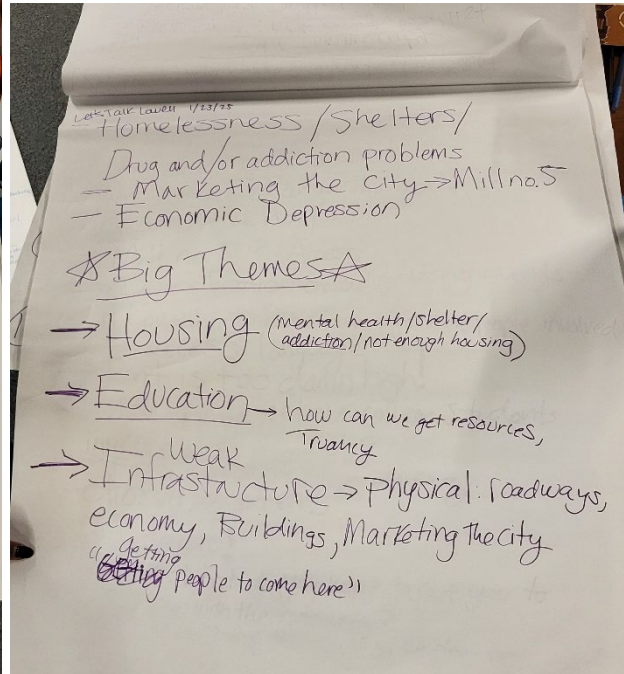 Let's Talk Lowell 1/23/25
- Homelessness/Shelters/
Drug and/or addiction problems
- Marketing the city → Mill no.5
- Economic Depression
☆Big Themes☆
→ Housing (mental health/shelter/
addiction/not enough housing)
→ Education → how can we get resources,
Truancy
Weak
→ Infrastructure → physical: roadways,
economy, Buildings, Marketing the city
"getting
people to come here"